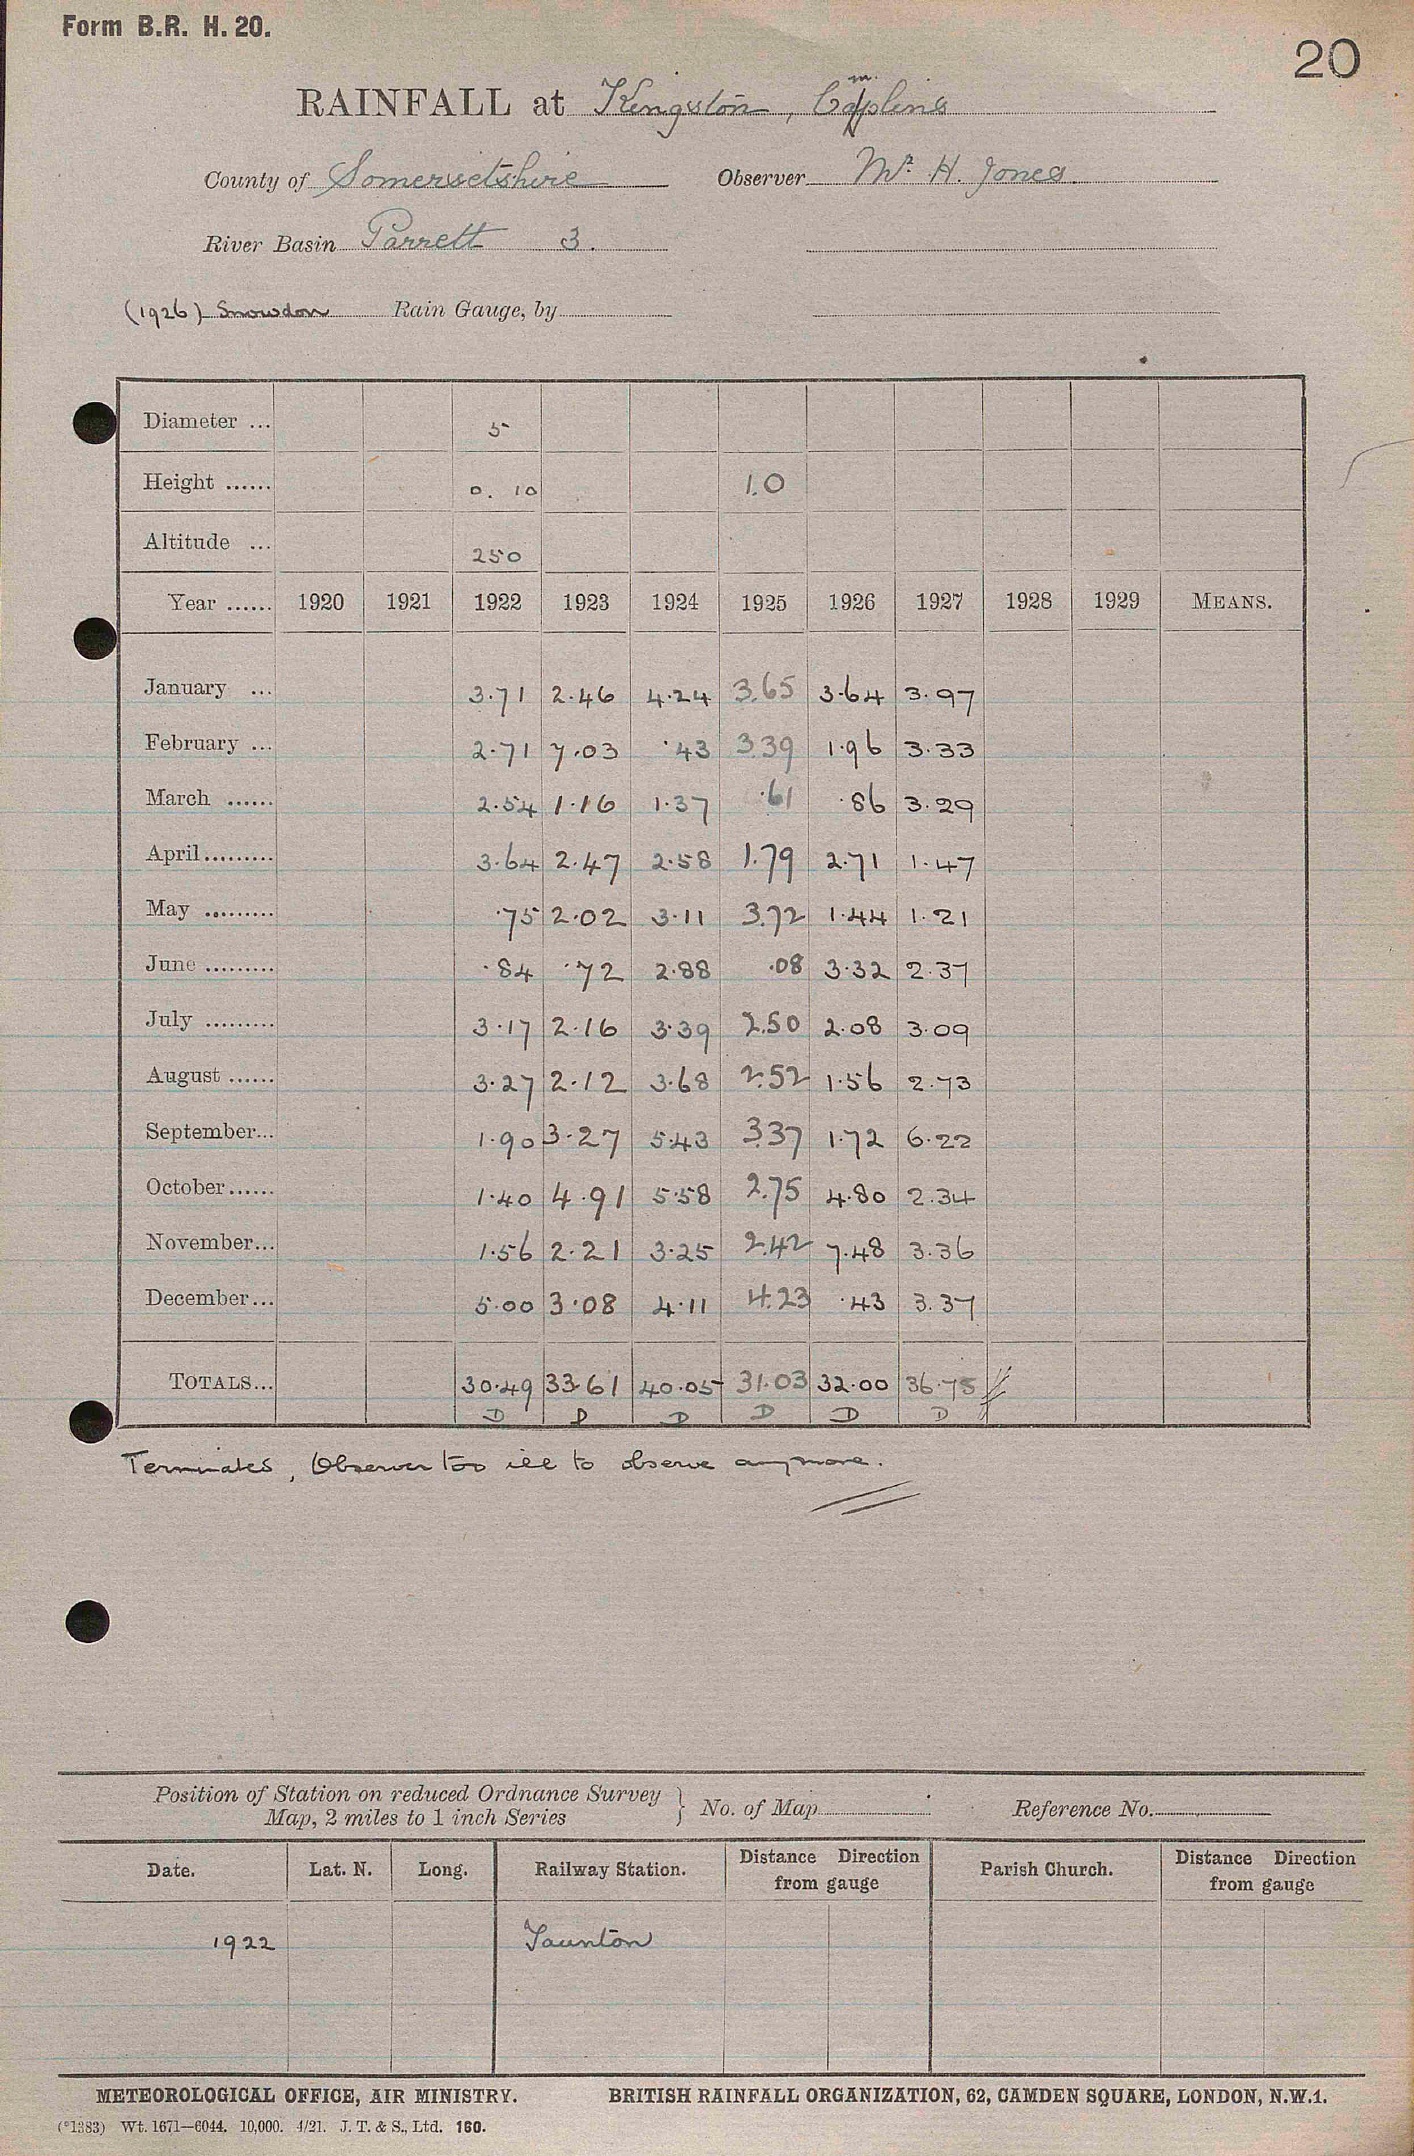 Form B.R. H. 20.
20
RAINFALL at Kingston, Caplins
m.
County of Somersetshire Observer Mr. H. Jones.
River Basin Parrett 3.
(1926) Snowdon Rain Gauge, by
Diameter ... 5
Height ...... 0. 10 1.0
Altitude ... 250
Year ...... 1920 1921 1922 1923 1924 1925 1926 1927 1928 1929 MEANS.
January ... 3.71 2.46 4.24 3.65 3.64 3.97
February ... 2.71 7.03 .43 3.39 1.96 3.33
March ...... 2.54 1.16 1.37 .61 .86 3.29
April......... 3.64 2.47 2.58 1.79 2.71 1.47
May ......... .75 2.02 3.11 3.72 1.44 1.21
June ......... .84 .72 2.88 .08 3.32 2.37
July ......... 3.17 2.16 3.39 2.50 2.08 3.09
August ...... 3.27 2.12 3.68 2.52 1.56 2.73
September... 1.90 3.27 5.43 3.37 1.72 6.22
October...... 1.40 4.91 5.58 2.75 4.80 2.34
November... 1.56 2.21 3.25 2.42 7.48 3.36
December... 5.00 3.08 4.11 4.23 .43 3.37
TOTALS... 30.49 33.61 40.05 31.03 32.00 36.75
D D D D D D
Terminates, Observer too ill to observe anymore.
Position of Station on reduced Ordnance Survey
Map, 2 miles to 1 inch Series } No. of Map Reference No.
Date. Lat. N. Long. Railway Station. Distance Direction from gauge Parish Church. Distance Direction from gauge
1922 Taunton
METEOROLOGICAL OFFICE, AIR MINISTRY. BRITISH RAINFALL ORGANIZATION, 62, CAMDEN SQUARE, LONDON, N.W.1.
(*1383) Wt. 1671—6044. 10,000. 4/21. J. T. & S., Ltd. 160.